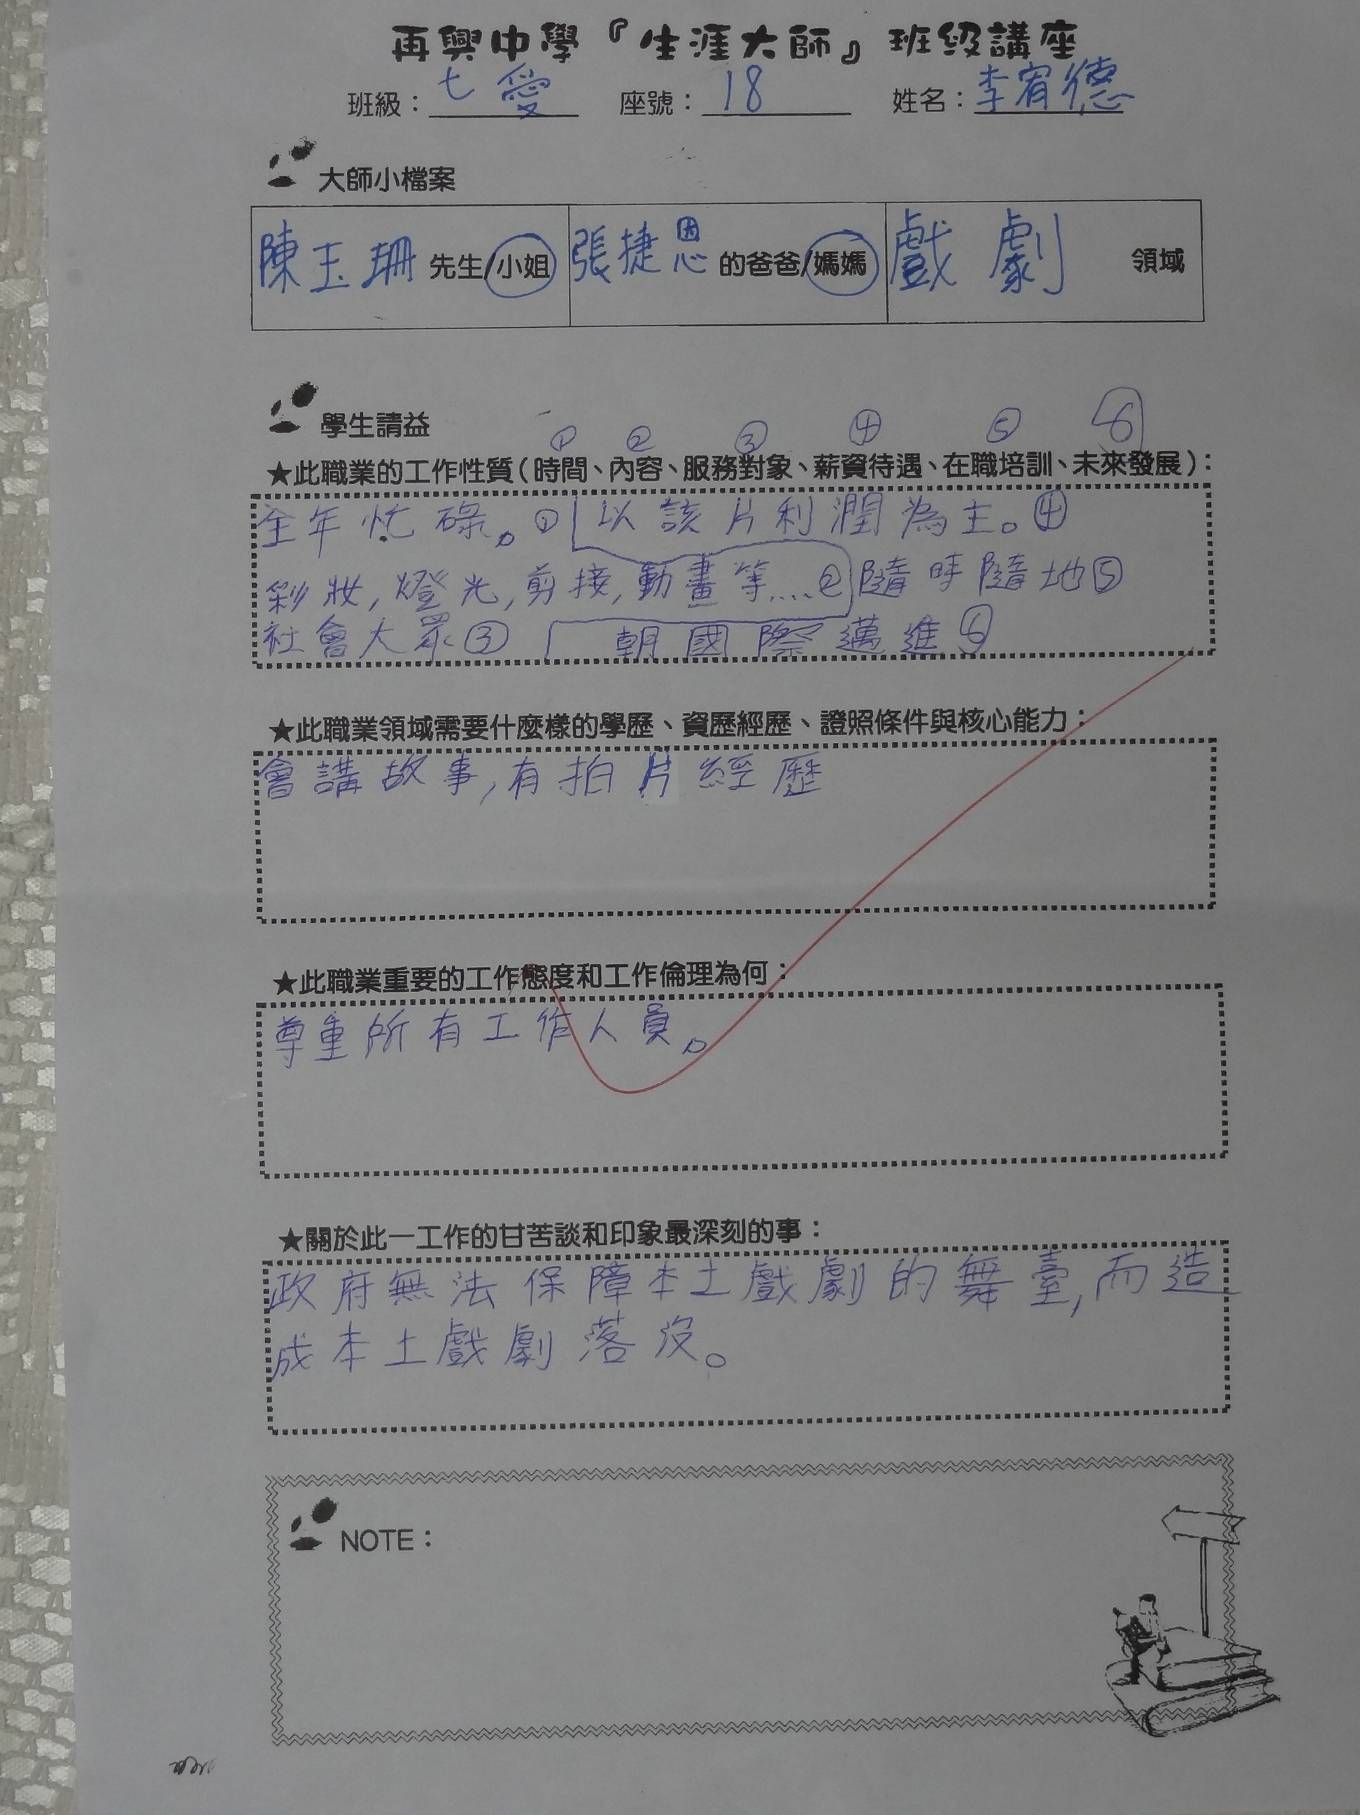 再興中學『生涯大師』班級講座
班級：七愛 座號：18 姓名：李宥德
大師小檔案
陳玉珊 先生/小姐 張捷恩 的爸爸/媽媽 戲劇 領域
學生請益
① ② ③ ④ ⑤ ⑥
★此職業的工作性質（時間、內容、服務對象、薪資待遇、在職培訓、未來發展）：
全年忙碌。① 以該片利潤為主。④
彩妝,燈光,剪接,動畫等....② 隨時隨地⑤
社會大眾③ 朝國際邁進⑥
★此職業領域需要什麼樣的學歷、資歷經歷、證照條件與核心能力：
會講故事,有拍片經歷
★此職業重要的工作態度和工作倫理為何：
尊重所有工作人員。
★關於此一工作的甘苦談和印象最深刻的事：
政府無法保障本土戲劇的舞臺,而造
成本土戲劇落沒。
NOTE：